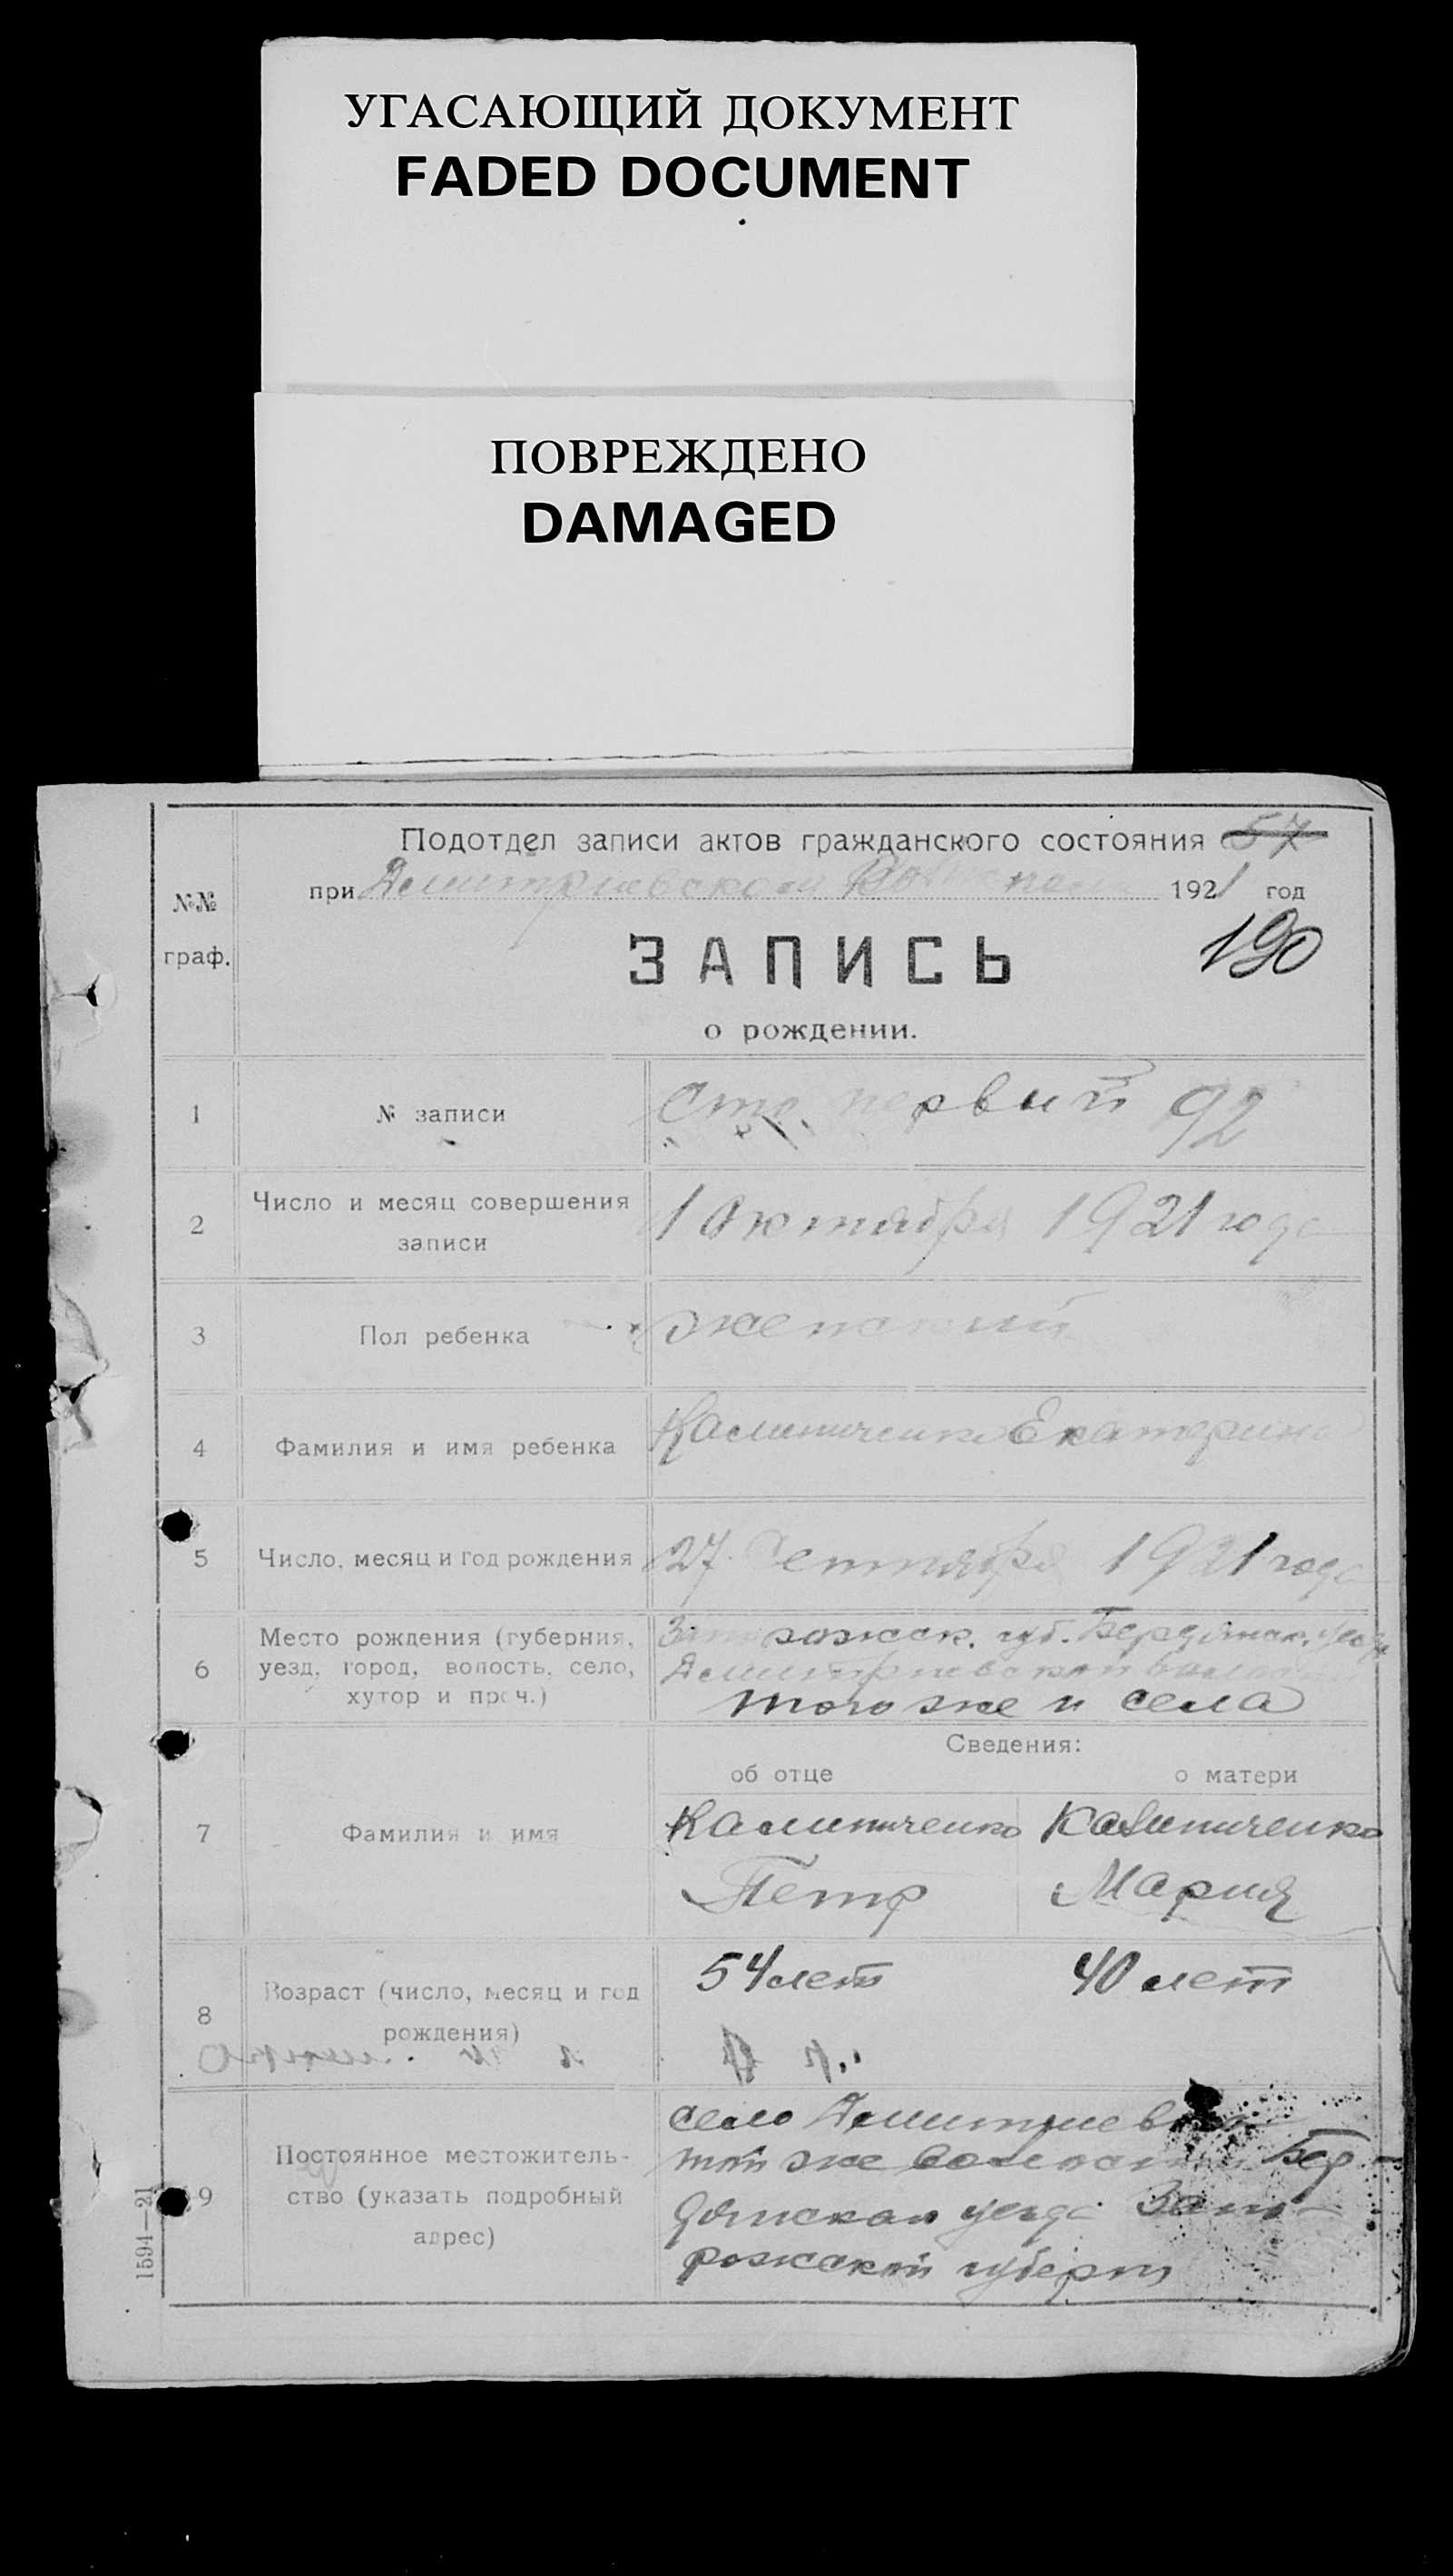 УГАСАЮЩИЙ ДОКУМЕНТ
FADED DOCUMENT
ПОВРЕЖДЕНО
DAMAGED
Подотдел записи актов гражданского состояния 57
при Дмитриевском 1921 год
№№
граф.
190
ЗАПИСЬ
о рождении.
1 № записи сто первый 92
2 Число и месяц совершения
записи
1 Октября 1921 года
3 Пол ребенка женский
4 Фамилия и имя ребенка Калиниченко Екатерина
5 Число, месяц и год рождения 27 Сентября 1921 года
6 Место рождения (губерния,
уезд, город, волость, село,
хутор и проч.)
Запорожск. губ. Бердянск. уезда
Дмитриевской волости
того же и села
Сведения:
об отце о матери
7 Фамилия и имя
Калиниченко Калиниченко
Петр Мария
8 Возраст (число, месяц и год
рождения)
54 лет 40 лет
9 Постоянное местожитель-
ство (указать подробный
адрес)
село
той же волости Бер-
дянскаго уезда Запо-
рожской
1594—21